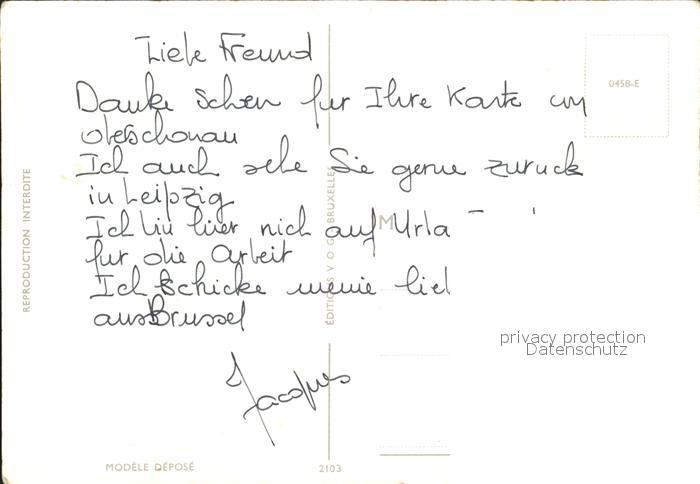 Liebe Freund
Danke schoen fur Ihre Karte
oberschonau
Ich auch sehe Sie gerne zuruck
in Leipzig
Ich bin hier nich auf Urla
fur die Arbeit
Ich schicke meine
aus Brussel
Jacques
0458-E
REPRODUCTION INTERDITE
ÉDITIONS V O G BRUXELLE
M
privacy protection
Datenschutz
MODÈLE DÉPOSÉ
2103